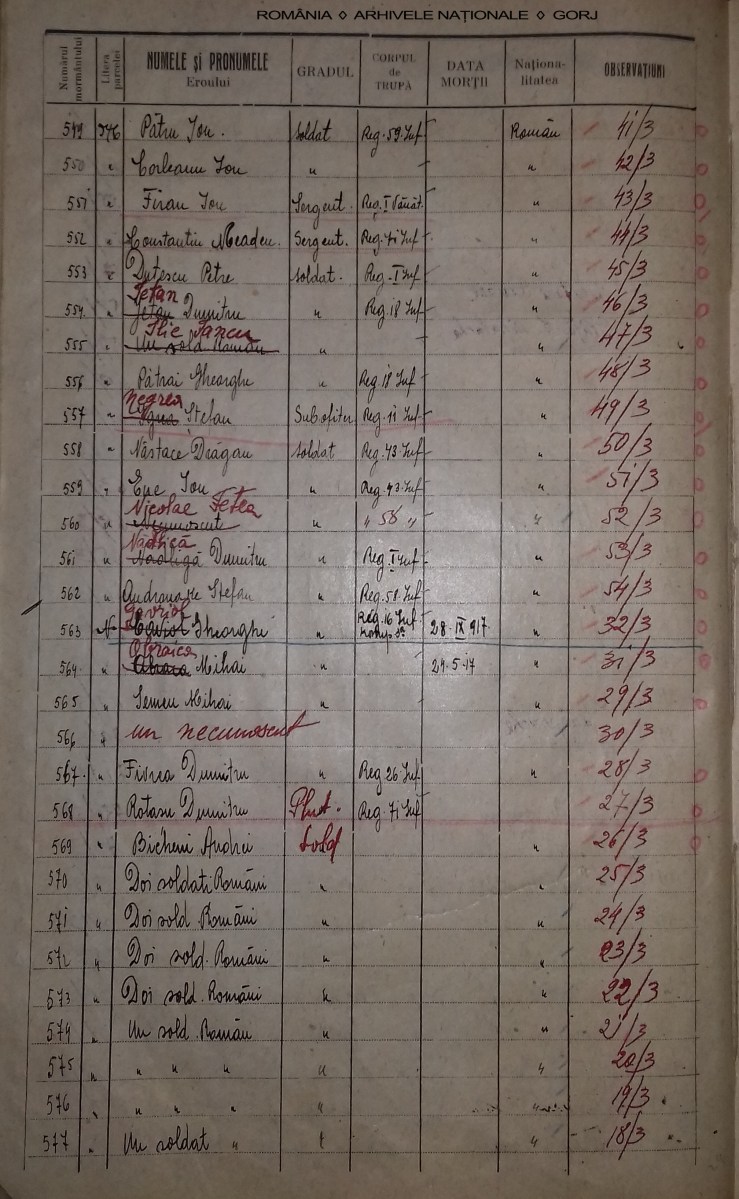 ROMÂNIA ◊ ARHIVELE NAȚIONALE ◊ GORJ
Numărul mormântului | Litera parcelei | NUMELE și PRONUMELE Eroului | GRADUL | CORPUL de TRUPĂ | DATA MORȚII | Naționalitatea | OBSERVAȚIUNI
549 Pătru Ion. soldat Reg. 59 Inf Român 41/3
550 " Corleanu Ion " " 42/3
551 " Firan Ion Sergent. Reg. I Vânăt. " 43/3
552 " Constantin Neadeu. Sergent. Reg. 71 Inf " 44/3
553 " Duțescu Petre soldat. Reg. I Inf " 45/3
Țețan
554 " Dumitru " Reg. 18 Inf " 46/3
Ilie Iancu
555 " Un sold Român " " 47/3
556 " Pătrai Gheorghe " Reg. 18 Inf " 48/3
Negrea
557 " Ștefan Subofiter Reg. 11 Inf " 49/3
558 " Năstace Drăgan soldat Reg. 43 Inf " 50/3
559 " Ene Ion " Reg. 43 Inf " 51/3
Nicolae Fetea
560 " Necunoscut " " 58 " " 52/3
Nădlică
561 " Dumitru " Reg. I Inf " 53/3
562 " Andronache Ștefan " Reg. 58 Inf " 54/3
Gavriol
563 Gheorghe " Reg. 16 Inf 28 IX 917 " 32/3
564 " Mihai " 24.5.17 " 31/3
565 " Semeu Mihai " " 29/3
566 " un necunoscut 30/3
567 " Firirea Dumitru " Reg. 26 Inf " 28/3
568 " Rotasu Dumitru Plut. Reg. 71 Inf 27/3
569 " Bicheni Andrei Sold " 26/3
570 " Doi soldati Români " " 25/3
571 " Doi sold Români " " 24/3
572 " Doi sold. Români " " 23/3
573 " Doi sold. Români " " 22/3
574 " Un sold. Român " " 21/3
575 " " " " " " 20/3
576 " " " " " " 19/3
577 " Un soldat " " " 18/3